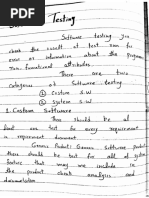 Testing
Software testing you
check the result of test run for
error or information about the program
Non-functional attributes.
There are two
categories of Software testing
① Costum S.W
② System S.W
1. Costum Software
There should be at
least one test for every requirement
in requirement document
Generic Product: Generic Software product
there should be test for all of system
feature that may are include in
the product check analysis and